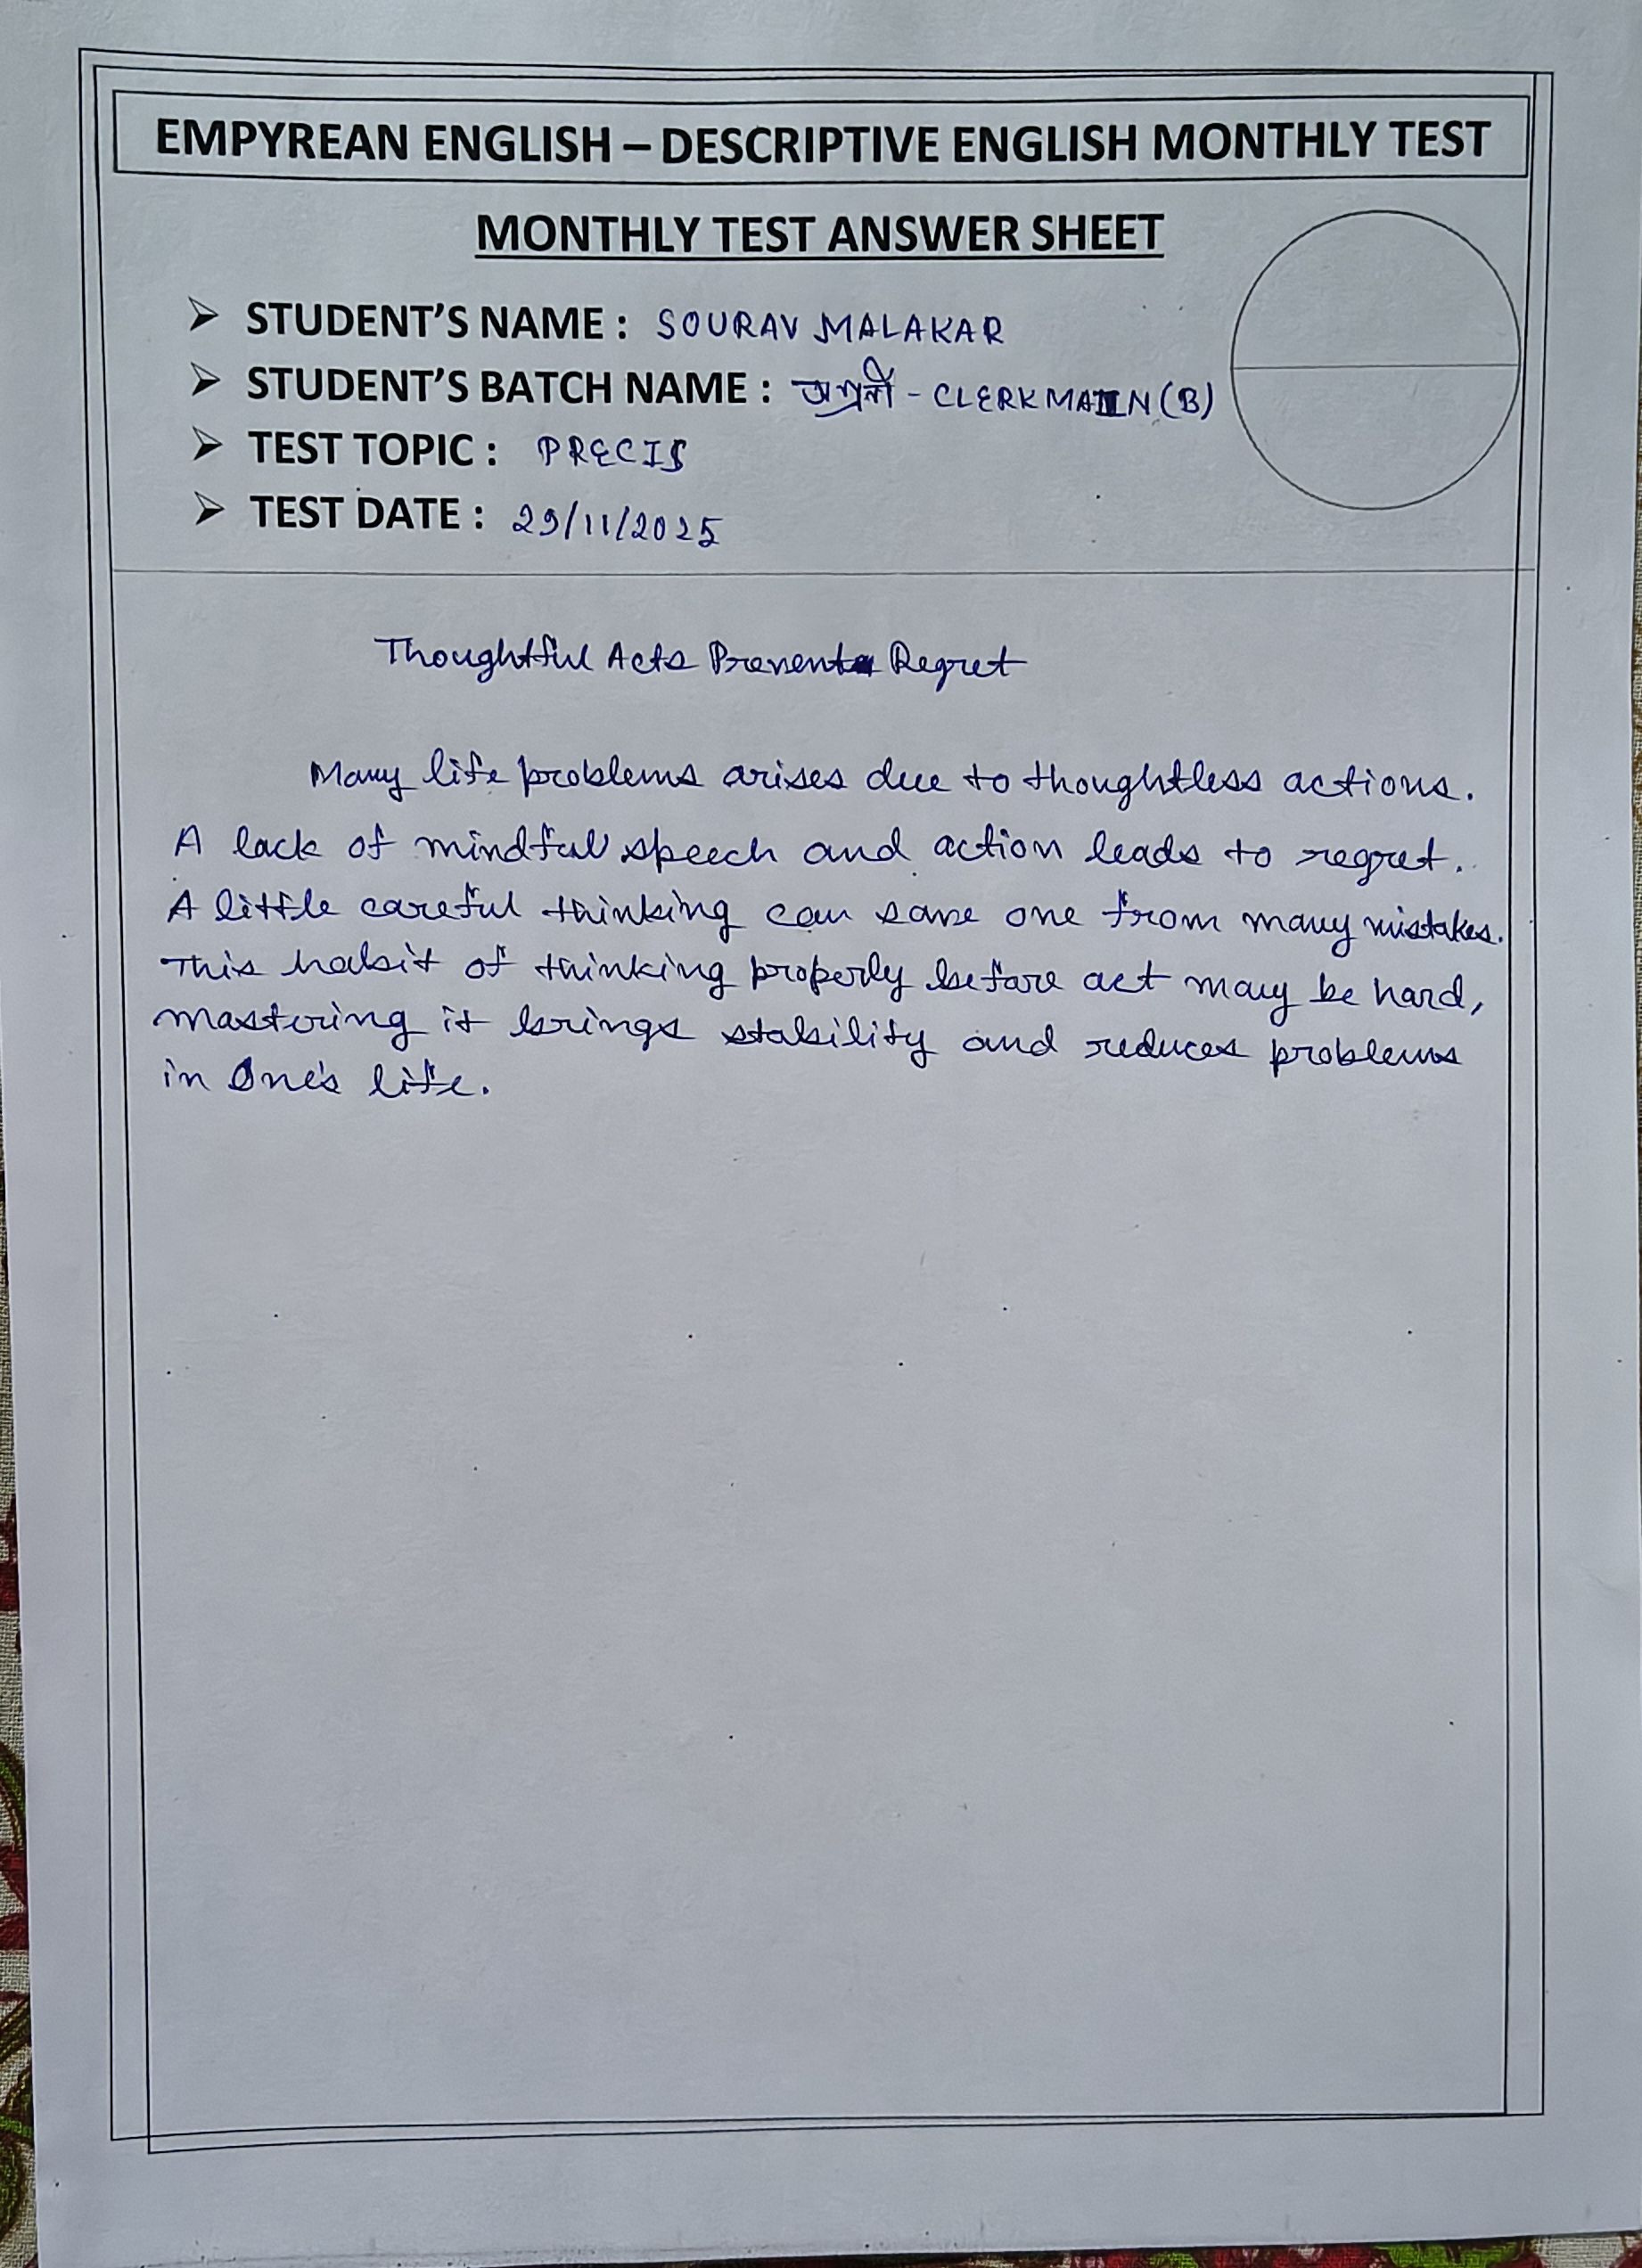 EMPYREAN ENGLISH – DESCRIPTIVE ENGLISH MONTHLY TEST
MONTHLY TEST ANSWER SHEET
➢ STUDENT'S NAME : SOURAV MALAKAR
➢ STUDENT'S BATCH NAME : অগ্রণী - CLERK MAIN (B)
➢ TEST TOPIC : PRECIS
➢ TEST DATE : 29/11/2025
Thoughtful Acts Prevent Regret
Many life problems arises due to thoughtless actions.
A lack of mindful speech and action leads to regret.
A little careful thinking can save one from many mistakes.
This habit of thinking properly before act may be hard,
mastering it brings stability and reduces problems
in One's life.